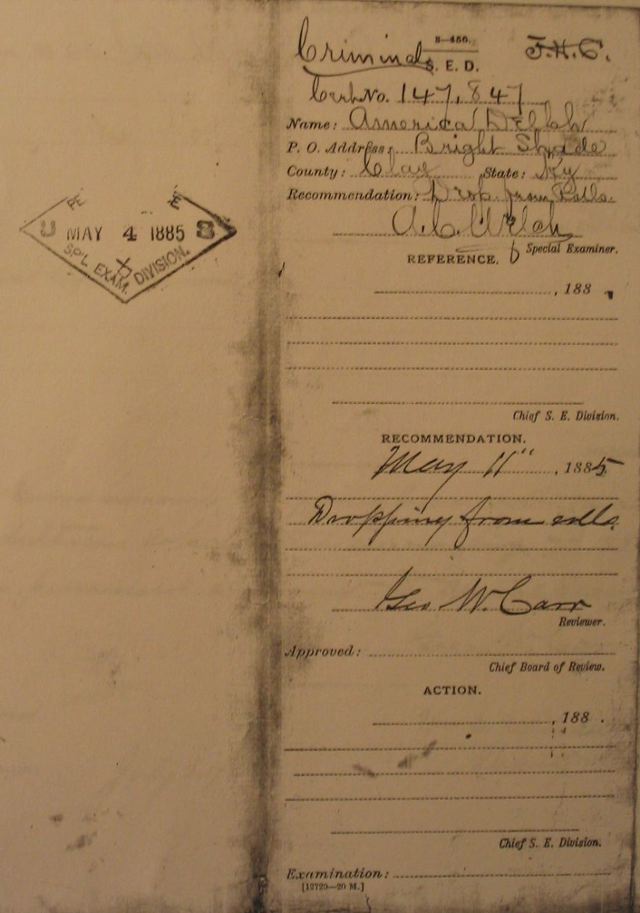 U S
MAY 4 1885
SP'L EXAM. DIVISION.
Criminal
3—456.
S. E. D.
F.H.C.
Cert. No. 147,847
Name: America
P. O. Address: Bright Shade
County: Clay State: Ky
Recommendation: Drop from Rolls.
Special Examiner.
REFERENCE.
, 188
Chief S. E. Division.
RECOMMENDATION.
May 11" , 1885
Dropping from rolls.
Geo W. Carr
Reviewer.
Approved:
Chief Board of Review.
ACTION.
, 188 .
Chief S. E. Division.
Examination:
[12720—20 M.]